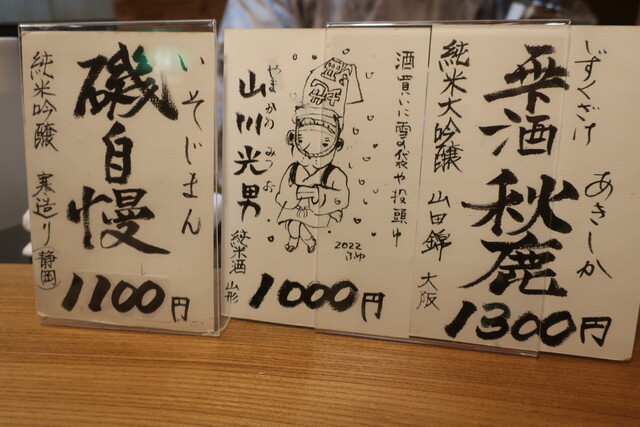 しずくざけ あきしか
雫酒 秋鹿
純米大吟醸 山田錦 大阪
1300円
酒買いに雪の
2022
ふゆ
やまかわ みつお
山川光男
純米酒 山形
1000円
いそじまん
磯自慢
純米吟醸 寒造り(静岡)
1100円